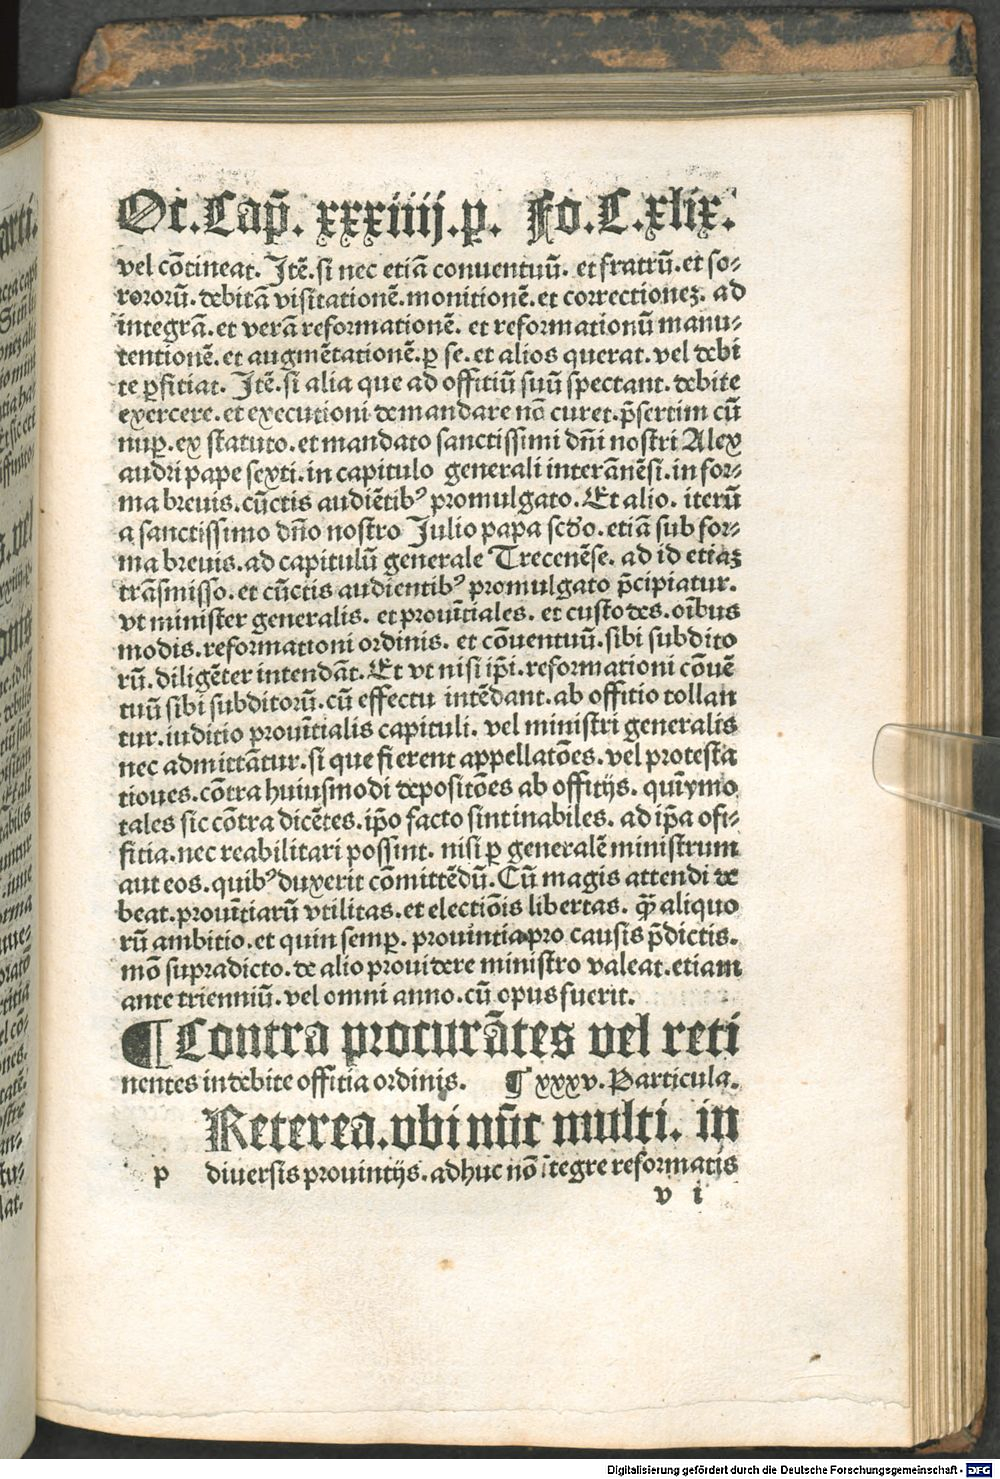 Oc. Cap̃. xxxiiij. p. Fo. C. xlix.
vel cōtineat. Itē. si nec etiā conuentuū. et fratrū. et so-
rororū. debitā visitationē. monitionē. et correctionez. ad
integrā. et verā reformationē. et reformationū manu-
tentionē. et augmētationē. ꝑ se. et alios querat. vel debi
te ꝑfitiat. Itē. si alia que ad offitiū suū spectant. debite
exercere. et executioni demandare nō curet. p̄sertim cū
nuꝑ. ex statuto. et mandato sanctissimi dn̄i nostri Alex
audri pape sexti. in capitulo generali interānēsi. in for-
ma breuis. cūctis audiētibꝰ promulgato. Et alio. iterū
a sanctissimo dn̄o nostro Julio papa scd̄o. etiā sub for-
ma breuis. ad capitulū generale Trecenēse. ad id etiaz
trāsmisso. et cūctis audientibꝰ promulgato p̄cipiatur.
vt minister generalis. et prouītiales. et custodes. oībus
modis. reformationi ordinis. et cōuentuū. sibi subdito
rū. diligēter intendāt. Et vt nisi ip̄i. reformationi cōuē
tuū sibi subditorū. cū effectu intēdant. ab offitio tollan
tur. iuditio prouītialis capituli. vel ministri generalis
nec admittātur. si que fierent appellatōes. vel protesta
tioues. cōtra huiusmodi depositōes ab offitijs. quīymo
tales sic cōtra dicētes. ip̄o facto sint inabiles. ad ip̄a ofi-
fitia. nec reabilitari possint. nisi ꝑ generalē ministrum
aut eos. quibꝰ duxerit cōmittēdū. Cū magis attendi de
beat. prouītiarū vtilitas. et electiōis libertas. q̄ȝ aliquo
rū ambitio. et quin semꝑ. prouintia pro causis p̄dictis.
mō supradicto. de alio prouidere ministro valeat. etiam
ante trienniū. vel omni anno. cū opus fuerit.
¶ Contra procurātes vel reti
nentes indebite offitia ordinis. ¶ xxxv. Particula.
Reterea. vbi nūc multi. in
p diuersis prouintijs. adhuc nō ītegre reformatis
v i
Digitalisierung gefördert durch die Deutsche Forschungsgemeinschaft - DFG